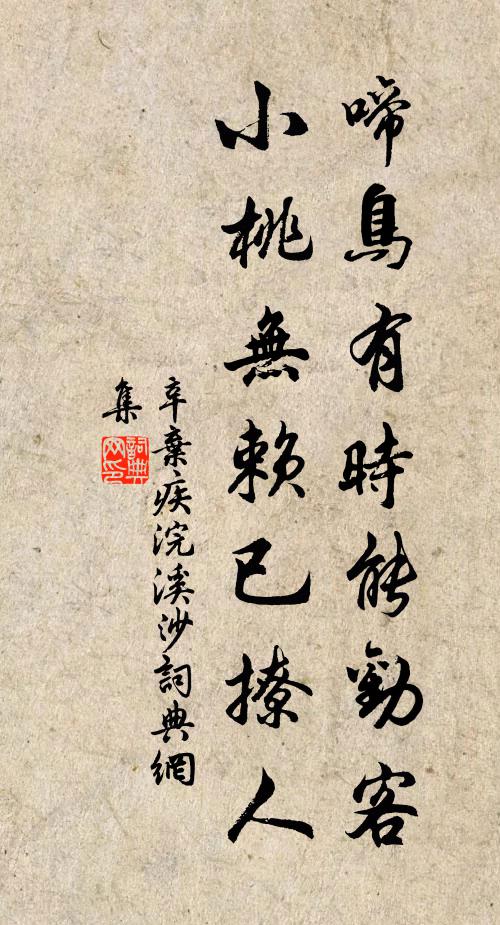 啼鳥有時能勸客
小桃無賴已撩人
辛棄疾浣溪沙詞典網
集
詞典網印